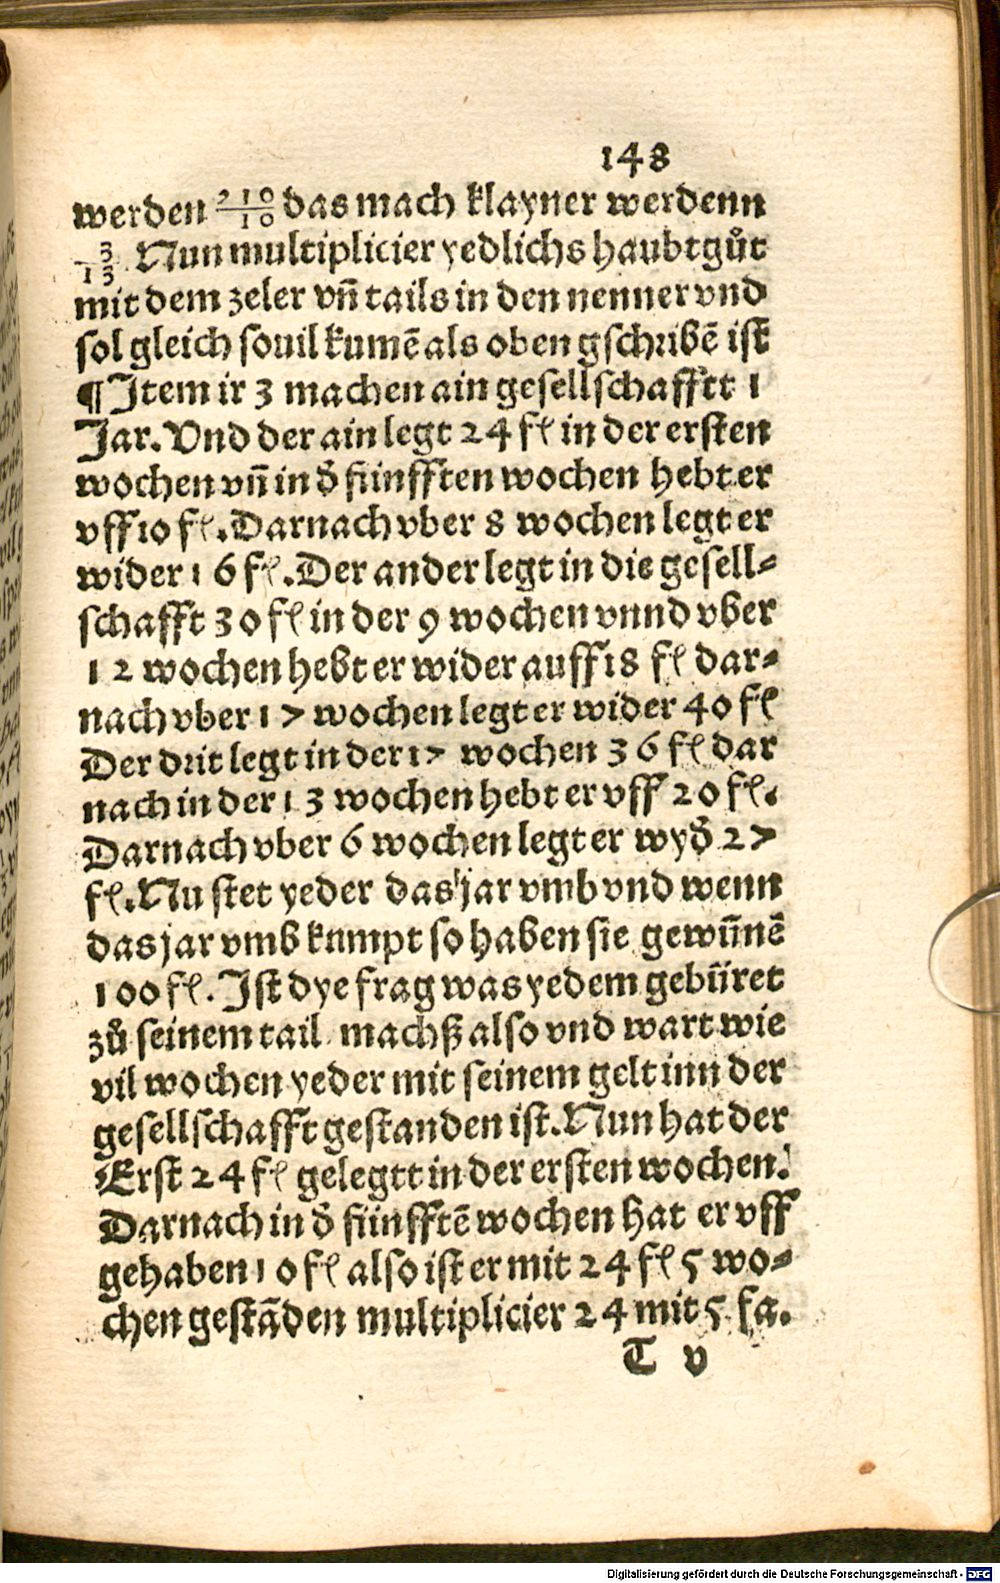 148
werden 210/910 das mach klayner werdenn
3/13. Nun multiplicier yedlichs haubtgůt
mit dem zeler vn̄ tails in den nenner vnd
sol gleich souil kumē als oben gschribē ist
¶ Item ir 3 machen ain gesellschafftt 1
Jar. Vnd der ain legt 24 fl in der ersten
wochen vn̄ in d̄ fünfften wochen hebt er
vff 10 fl. Darnach vber 8 wochen legt er
wider 16 fl. Der ander legt in die gesell⸗
schafft 30 fl in der 9 wochen vnnd vber
12 wochen hebt er wider auff 18 fl dar⸗
nach vber 17 wochen legt er wider 40 fl
Der drit legt in der 17 wochen 36 fl dar
nach in der 13 wochen hebt er vff 20 fl.
Darnach vber 6 wochen legt er wyd̄ 27
fl. Nu stet yeder das jar vmb vnd wenn
das jar vmb kumpt so haben sie gewūnē
100 fl. Ist dye frag was yedem gebüret
zů seinem tail machß also vnd wart wie
vil wochen yeder mit seinem gelt inn der
gesellschafft gestanden ist. Nun hat der
Erst 24 fl gelegtt in der ersten wochen.
Darnach in d̄ fünfftē wochen hat er vff
gehaben 10 fl also ist er mit 24 fl 5 wo⸗
chen gestāden multiplicier 24 mit 5 fa.
T v
Digitalisierung gefördert durch die Deutsche Forschungsgemeinschaft - DFG